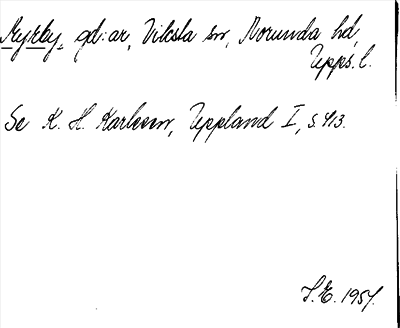 Myrby, gd:ar, Viksta sn, Norunda hd,
Upps. l.
Se K. H. Karlsson, Uppland I, s. 413.
S.E. 1954.